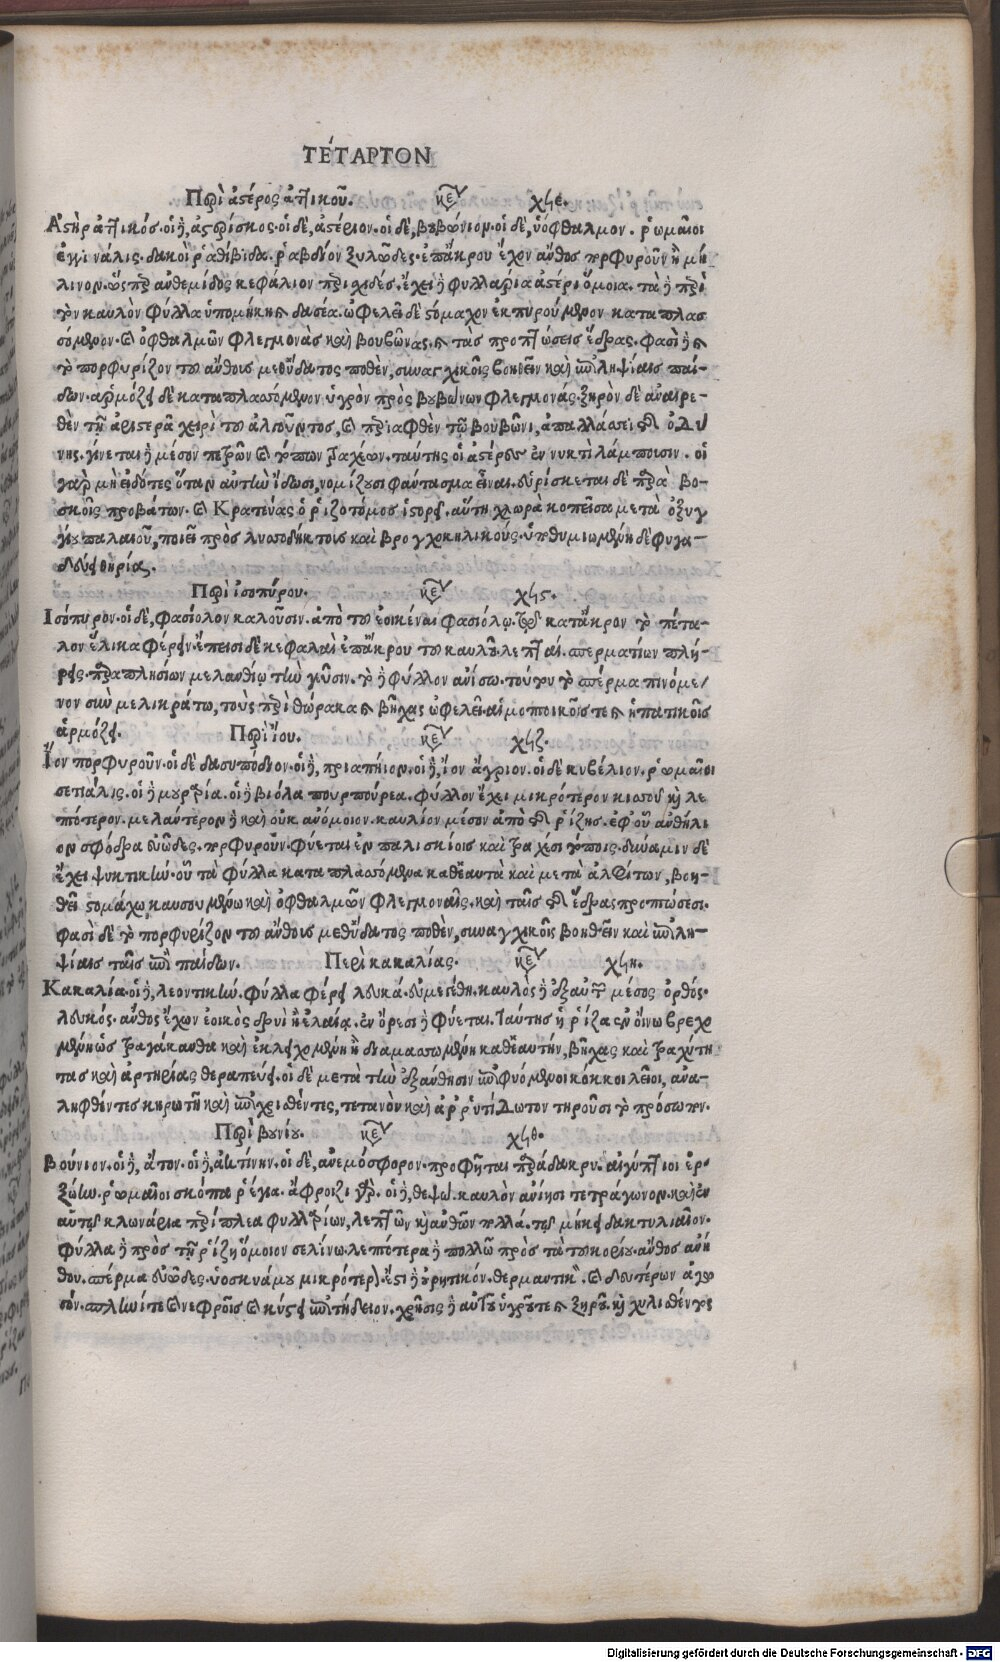 ΤΕΤΑΡΤΟΝ
Περὶ ἀστέρος ἀττικοῦ. κεφ χϟε.
Ἀστὴρ ἀττικός. οἱ δὲ, ἀστερίσκος. οἱ δὲ, ἀστέριον. οἱ δὲ, βουβώνιον. οἱ δὲ, ὑόφθαλμον. ῥωμαῖοι
ἰγκινάλις. δακοὶ ῥαθίβιδα. ῥαβδίον ξυλῶδες. ἐπ' ἄκρου ἔχον ἄνθος πορφυροῦν ἢ μή-
λινον. ὥσπερ ἀνθεμίδος κεφάλιον περισχιδές. ἔχει δὲ φυλλάρια ἀστέρι ὅμοια. τὰ δὲ περὶ
τὸν καυλὸν φύλλα ὑπομήκη καὶ δασέα. ὠφελεῖ δὲ στόμαχον ἐκπυρούμενον καταπλασ
σόμενον. καὶ ὀφθαλμῶν φλεγμονὰς καὶ βουβῶνας. καὶ τὰς προπτώσεις ἕδρας. φασὶ δὲ καὶ
τὸ πορφυρίζον τοῦ ἄνθους μεθ' ὕδατος ποθὲν, συναγχικοῖς βοηθεῖν καὶ ἐπιληψίαις παί-
δων. ἁρμόζει δὲ καταπλασσόμενον ὑγρὸν πρὸς βουβώνων φλεγμονάς. ξηρὸν δὲ ἀναιρε-
θὲν τῇ ἀριστερᾷ χειρὶ τοῦ ἀλγοῦντος, καὶ περιαφθὲν τῷ βουβῶνι, ἀπαλλάσσει τῆς ὀδύ
νης. γίνεται δὲ μέσον πετρῶν καὶ τόπων τραχέων. ταύτης οἱ ἀστέρες ἐν νυκτὶ λάμπουσιν. οἱ
γὰρ μὴ εἰδότες ὅταν αὐτὴν ἴδωσι, νομίζουσι φάντασμα εἶναι. εὑρίσκεται δὲ παρὰ βο-
σκοῖς προβάτων. καὶ Κρατεύας ὁ ῥιζοτόμος ἱστορεῖ. αὕτη χλωρὰ κοπεῖσα μετὰ ὀξυγ
γίου παλαιοῦ, ποιεῖ πρὸς λυσσοδήκτους καὶ βρογχοκηλικούς. ὑποθυμιωμένη δὲ φυγα-
δεύει θηρία.
Περὶ ἰσοπύρου. κεφ χϟς.
Ἰσόπυρον. οἱ δὲ, φασίολον καλοῦσιν. ἀπὸ τοῦ ἐοικέναι φασιόλῳ. κατ' ἄκρον τὸ πέτα-
λον ἕλικα φέρειν. ἔπεισι δὲ κεφαλαὶ ἐπ' ἄκρου τοῦ καυλοῦ λεπταί. σπερματίων πλή-
ρεις. παραπλησίων μελανθίῳ τὴν γεῦσιν. τὸ δὲ φύλλον ἀνίσῳ. τούτου τὸ σπέρμα πινόμε-
νον σὺν μελικράτῳ, τοὺς περὶ θώρακα καὶ βῆχας ὠφελεῖ. αἱμοπτοικοῖς τε καὶ ἡπατικοῖς
ἁρμόζει. Περὶ ἴου. κεφ χϟζ.
Ἴον πορφυροῦν. οἱ δὲ δασυπόδιον. οἱ δὲ, πριαπήιον. οἱ δὲ, ἴον ἄγριον. οἱ δὲ κυβέλιον. ῥωμαῖοι
σετιάλις. οἱ δὲ μουρρία. οἱ δὲ βιόλα πουρπούρεα. φύλλον ἔχει μικρότερον κισσοῦ καὶ λε
πτότερον. μελαντερον δὲ καὶ οὐκ ἀνόμοιον. καυλίον μέσον ἀπὸ τῆς ῥίζης. ἐφ' οὗ ἀνθήλι
ον σφόδρα εὐῶδες. πορφυροῦν. φύεται ἐν παλισκίοις καὶ τραχέσι τόποις. δύναμιν δὲ
ἔχει ψυκτικήν. οὗ τὰ φύλλα καταπλασσόμενα καθ' ἑαυτὰ καὶ μετὰ ἀλφίτων, βοη-
θεῖ στομάχῳ καυσουμένῳ καὶ ὀφθαλμῶν φλεγμοναῖς. καὶ ταῖς τῆς ἕδρας προπτώσεσι.
φασὶ δὲ τὸ πορφυρίζον τοῦ ἄνθους μεθ' ὕδατος ποθὲν, συναγχικοῖς βοηθεῖν καὶ ἐπιλη-
ψίαις ταῖς ἐπὶ παίδων. Περὶ κακαλίας. κεφ χϟη.
Κακαλία. οἱ δὲ, λεοντικήν. φύλλα φέρει λευκά. εὐμεγέθη. καυλὸς δὲ ἐξ αὐτῶν μέσος ὀρθός.
λευκός. ἄνθος ἔχων ἐοικὸς δρυὶ ἢ ἐλαίᾳ. ἐν ὄρεσι δὲ φύεται. Ταύτης ἡ ῥίζα ἐν οἴνῳ βρεχο
μένη ὡς τραγάκανθα καὶ ἐκλειχομένη ἢ διαμασσωμένη καθ' ἑαυτήν, βῆχας καὶ τραχύτη
τας καὶ ἀρτηρίας θεραπεύει. οἱ δὲ μετὰ τὴν ἐξάνθησιν ἐπιφυόμενοι κόκκοι λεῖοι, ἀνα-
ληφθέντες κηρωτῇ καὶ ἐπιχρισθέντες, τετανὸν καὶ ἀρρυτίδωτον τηροῦσι τὸ πρόσωπον.
Περὶ βουνίου. κεφ χϟθ.
Βούνιον. οἱ δὲ, ἄτον. οἱ δὲ, ἀκτίνην. οἱ δὲ, ἀνεμόσφορον. προφῆται παράδακρυ. αἰγύπτιοι ἐρ-
ξώην. ῥωμαῖοι σκόπα ῥέγια. ἄφροι ζιγάρ. οἱ δὲ, θεψώ. καυλὸν ἀνίησι τετράγωνον. καὶ ἐν
αὐτῷ κλωνάρια περίπλεα φυλλαρίων, λεπτῶν καὶ ἀνθῶν πολλά. τῷ μήκει δακτυλιαῖον.
φύλλα δὲ πρὸς τῇ ῥίζῃ ὅμοιον σελίνῳ. λεπτότερα δὲ πολλῷ πρὸς τὰ τοῦ κορίου. ἄνθος ἀνή
θου. σπέρμα εὐῶδες. ὑοσκυάμου μικρότερον. ἔστι δὲ οὐρητικόν. θερμαντικόν. καὶ δευτέρων ἀγω
γόν. σπληνί τε καὶ νεφροῖς καὶ κύστει ἐπιτήδειον. χρῆσις δὲ αὐτοῦ ὑγροῦ τε καὶ ξηροῦ. καὶ χυλισθέντος
Digitalisierung gefördert durch die Deutsche Forschungsgemeinschaft - DFG